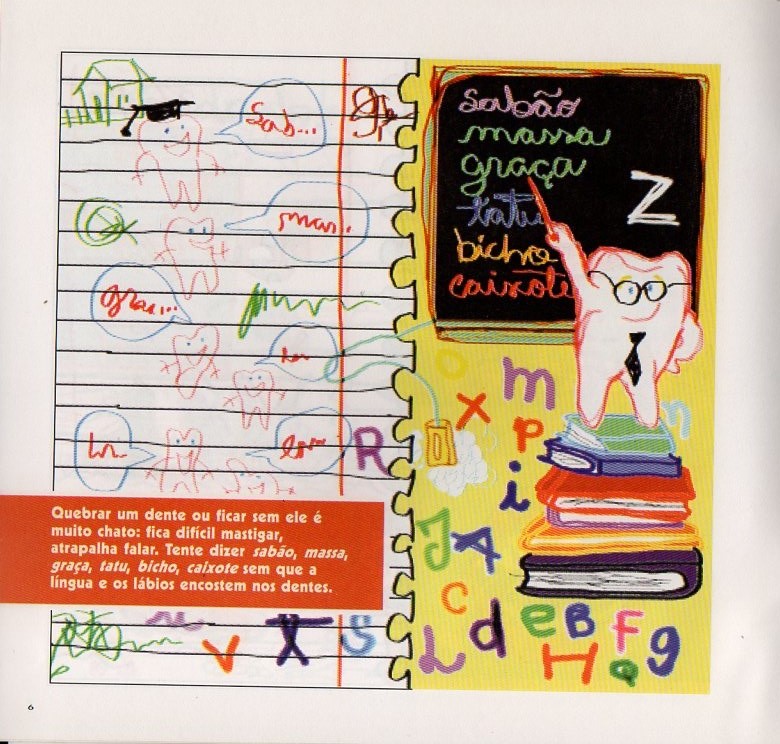 Sab...
mas...
gra...
sabão
massa
graça
tatu
bicho
caixote
Z
Quebrar um dente ou ficar sem ele é
muito chato: fica difícil mastigar,
atrapalha falar. Tente dizer sabão, massa,
graça, tatu, bicho, caixote sem que a
língua e os lábios encostem nos dentes.
o
m
x
p
n
R
i
J A
c
d
e B F g
L
H
Q
V X S
6